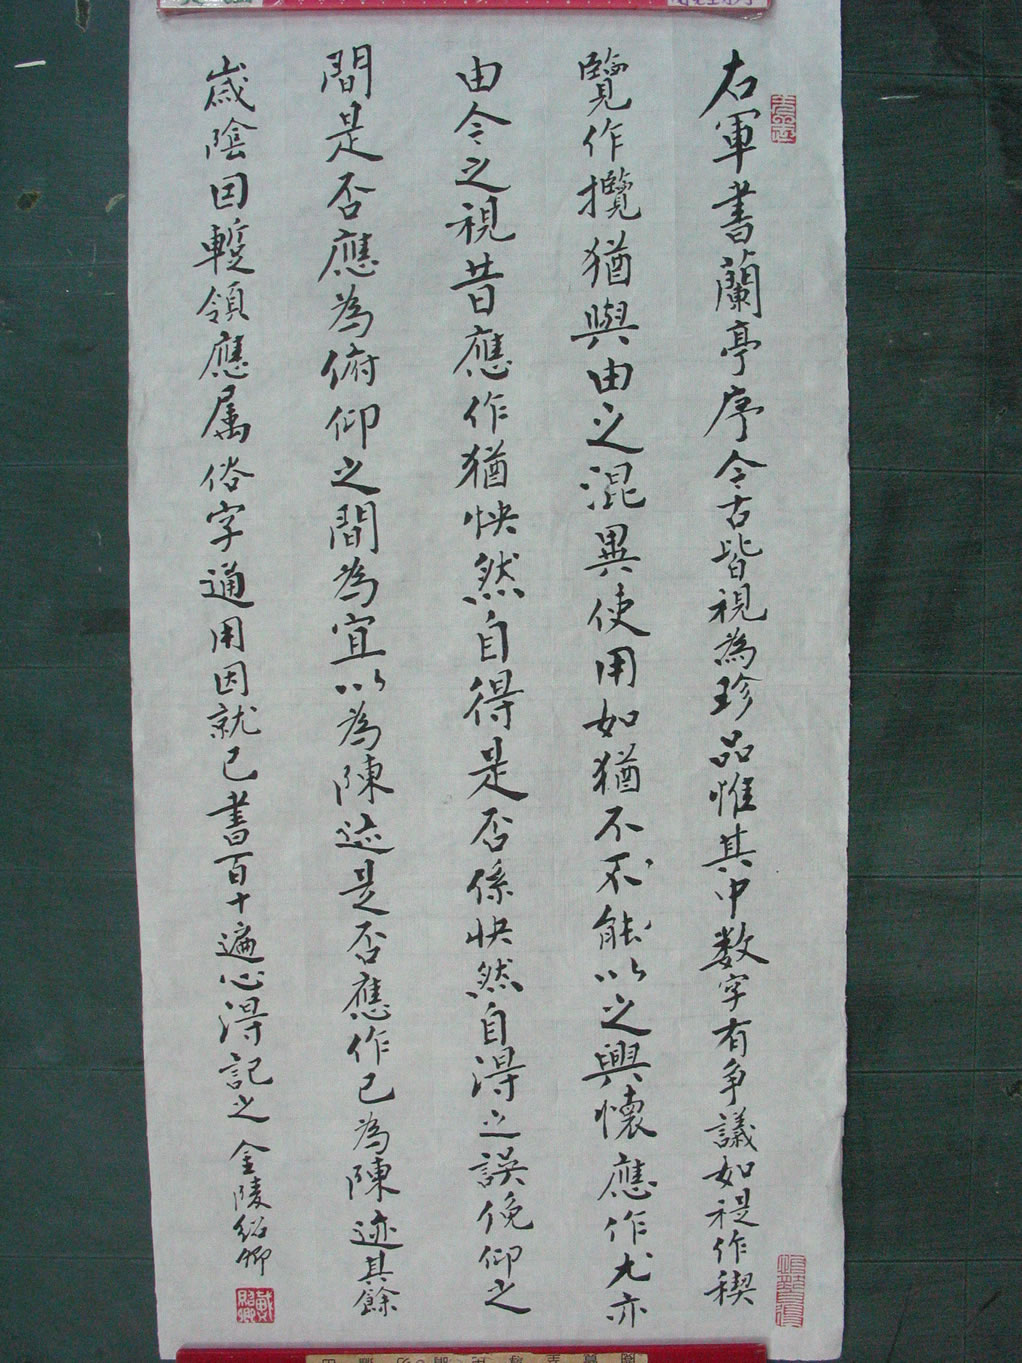 右軍書蘭亭序今古皆視為珍品惟其中数字有争議如禔作稧
覽作攬猶與由之混異使用如猶不不能以之興懷應作尤亦
由今之視昔應作猶怏然自得是否係快然自得之誤俛仰之
間是否應為俯仰之間為宜以為陳迹是否應作已為陳迹其餘
歲陰因蹔領應属俗字通用因就已書百十遍心得記之 金陵紹卿